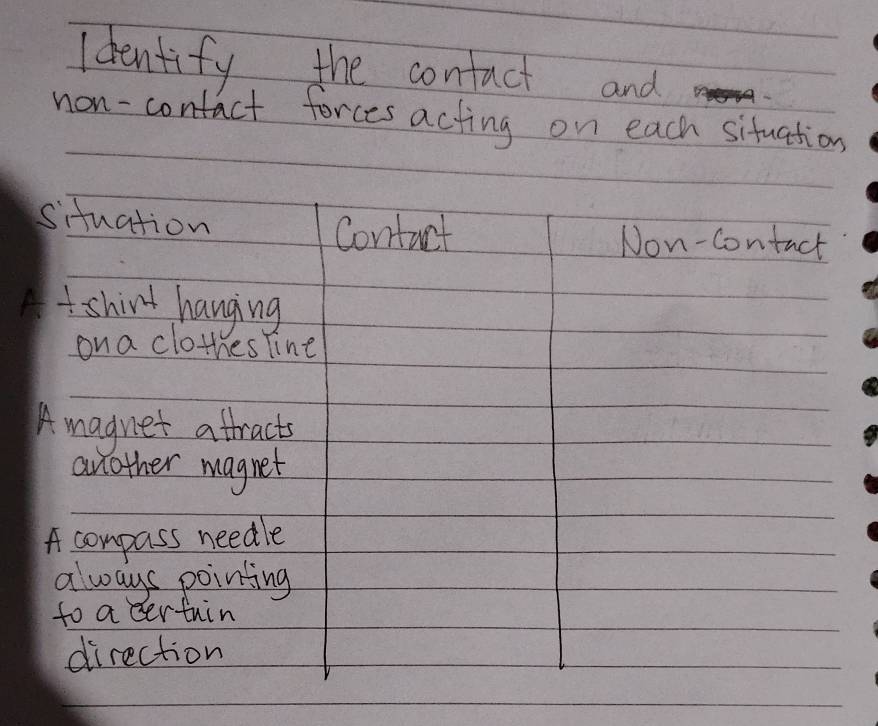 Identify the contact and
non-contact forces acting on each situation
Situation Contact Non-contact
A t-shirt hanging
on a clothesline
A magnet attracts
another magnet
A compass needle
always pointing
to a certain
direction